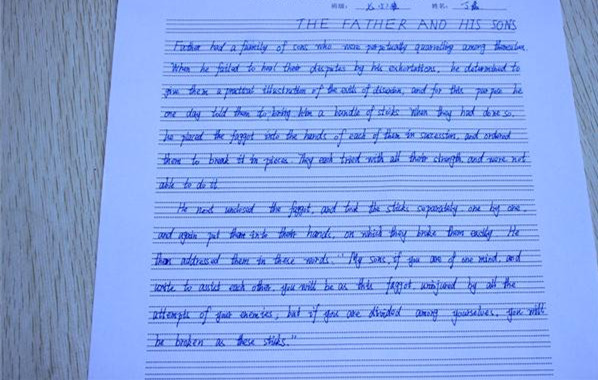 班级： 姓名：
THE FATHER AND HIS SONS
Father had a family of sons who were perpetually quarrelling among themselves
When he failed to heal their disputes by his exhortations, he determined to
give them a practical illustration of the evils of disunion, and for this purpose he
one day told them to bring him a bundle of sticks When they had done so,
he placed the faggot into the hands of each of them in succession, and ordered
them to break it in pieces. They each tried with all their strength and were not
able to do it.
He next unclosed the faggot, and took the sticks separately, one by one,
and again put them into their hands, on which they broke them easily. He
then addressed them in these words. "My sons, if you are of one mind, and
unite to assist each other, you will be as this faggot, uninjured by all the
attempts of your enemies; but if you are divided among yourselves, you will
be broken as these sticks."